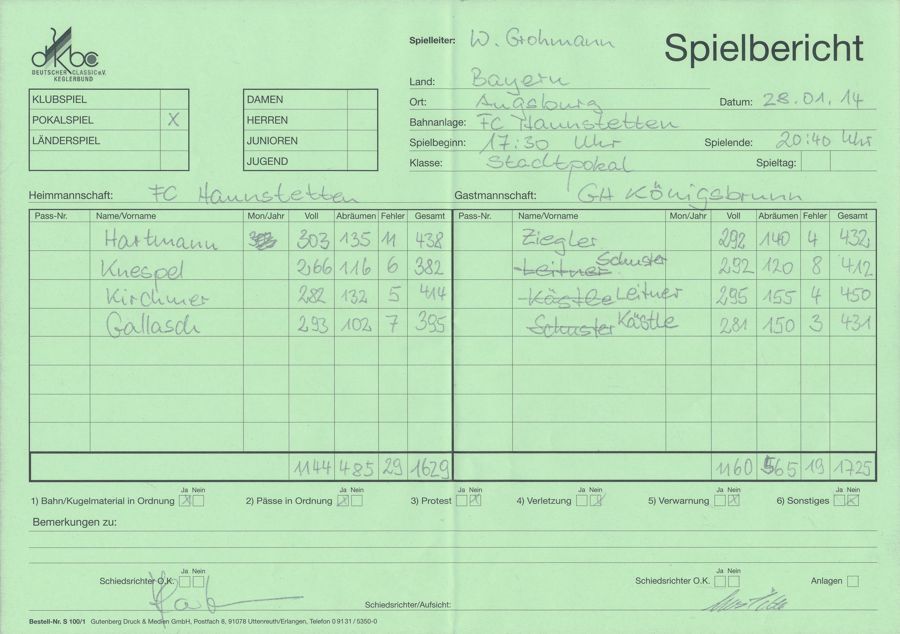 dkbc
DEUTSCHER CLASSIC e.V.
KEGLERBUND
Spielleiter: W. Grohmann
Spielbericht
Land: Bayern
Ort: Augsburg Datum: 28.01.14
Bahnanlage: FC Haunstetten
Spielbeginn: 17:30 Uhr Spielende: 20:40 Uhr
Klasse: Stadtpokal Spieltag:
KLUBSPIEL DAMEN
POKALSPIEL X HERREN
LÄNDERSPIEL JUNIOREN
JUGEND
Heimmannschaft: FC Haunstetten Gastmannschaft: GH Königsbrunn
Pass-Nr. Name/Vorname Mon/Jahr Voll Abräumen Fehler Gesamt Pass-Nr. Name/Vorname Mon/Jahr Voll Abräumen Fehler Gesamt
Hartmann 303 135 11 438 Ziegler 292 140 4 432
Knespel 266 116 6 382 Leitner Schuster 292 120 8 412
Kirchner 282 132 5 414 Kästle Leitner 295 155 4 450
Gallasch 293 102 7 395 Schuster Kästle 281 150 3 431
1144 485 29 1629 1160 565 19 1725
Ja Nein Ja Nein Ja Nein Ja Nein Ja Nein Ja Nein
1) Bahn/Kugelmaterial in Ordnung X 2) Pässe in Ordnung X 3) Protest X 4) Verletzung X 5) Verwarnung X 6) Sonstiges X
Bemerkungen zu:
Ja Nein Ja Nein
Schiedsrichter O.K. Schiedsrichter O.K. Anlagen
Schiedsrichter/Aufsicht:
Bestell-Nr. S 100/1 Gutenberg Druck & Medien GmbH, Postfach 8, 91078 Uttenreuth/Erlangen, Telefon 0 91 31 / 5350-0